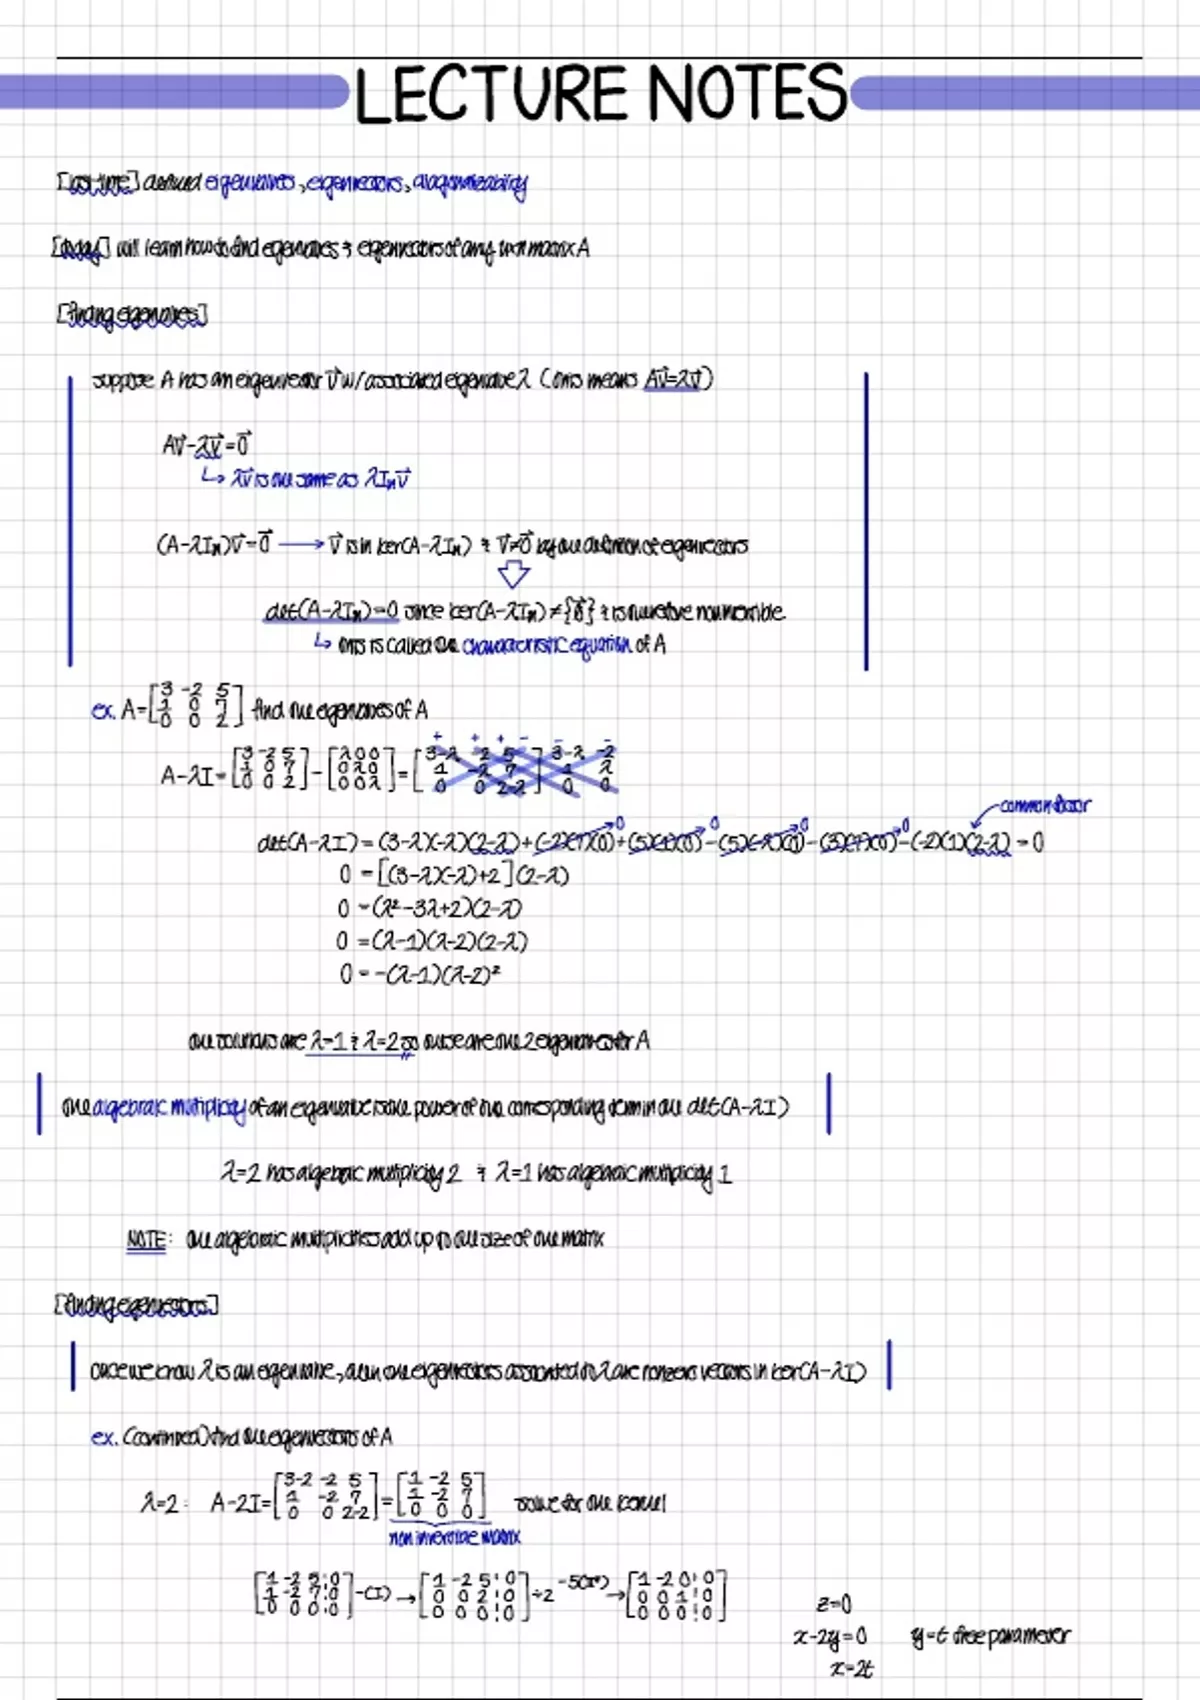 LECTURE NOTES
[last time] defined eigenvalues, eigenvectors, diagonalizability
[today] will learn how to find eigenvalues & eigenvectors of any nxn matrix A
[finding eigenvalues]
suppose A has an eigenvector v⃗ w/ associated eigenvalue λ (this means Av⃗=λv⃗)
Av⃗-λv⃗=0⃗
↳ λv⃗ is the same as λIₙv⃗
(A-λIₙ)v⃗=0⃗ ⟶ v⃗ is in ker(A-λIₙ) & v⃗≠0⃗ by the definition of eigenvectors
det(A-λIₙ)=0 since ker(A-λIₙ)≠{0⃗} & is therefore noninvertible
↳ this is called the characteristic equation of A
ex. A=[3 -2 5; 1 0 7; 0 0 2] find the eigenvalues of A
A-λI=[3 -2 5; 1 0 7; 0 0 2]-[λ 0 0; 0 λ 0; 0 0 λ]=[3-λ -2 5; 1 -λ 7; 0 0 2-λ] 3-λ -2; 1 λ; 0 0
+ + + - - -
common factor
det(A-λI)=(3-λ)(-λ)(2-λ)+(-2)(7)(0)+(5)(1)(0)-(5)(-λ)(0)-(3)(7)(0)-(-2)(1)(2-λ)=0
0 0 0 0
0 =[(3-λ)(-λ)+2](2-λ)
0 =(λ²-3λ+2)(2-λ)
0 =(λ-1)(λ-2)(2-λ)
0 =-(λ-1)(λ-2)²
the solutions are λ=1 & λ=2 so these are the 2 eigenvalues for A
the algebraic multiplicity of an eigenvalue is the power of the corresponding term in the det(A-λI)
λ=2 has algebraic multiplicity 2 & λ=1 has algebraic multiplicity 1
NOTE: the algebraic multiplicities add up to the size of the matrix
[finding eigenvectors]
once we know λ is an eigenvalue, then the eigenvectors associated to λ are nonzero vectors in ker(A-λI)
ex. (continued) find the eigenvectors of A
λ=2: A-2I=[3-2 -2 5; 1 -2 7; 0 0 2-2]=[1 -2 5; 1 -2 7; 0 0 0] solve for the kernel
non invertible matrix
[1 -2 5 ¦ 0; 1 -2 7 ¦ 0; 0 0 0 ¦ 0] -(I) → [1 -2 5 ¦ 0; 0 0 2 ¦ 0; 0 0 0 ¦ 0] ÷2 → [1 -2 0 ¦ 0; 0 0 1 ¦ 0; 0 0 0 ¦ 0]
z=0
x-2y=0 y=t free parameter
x=2t